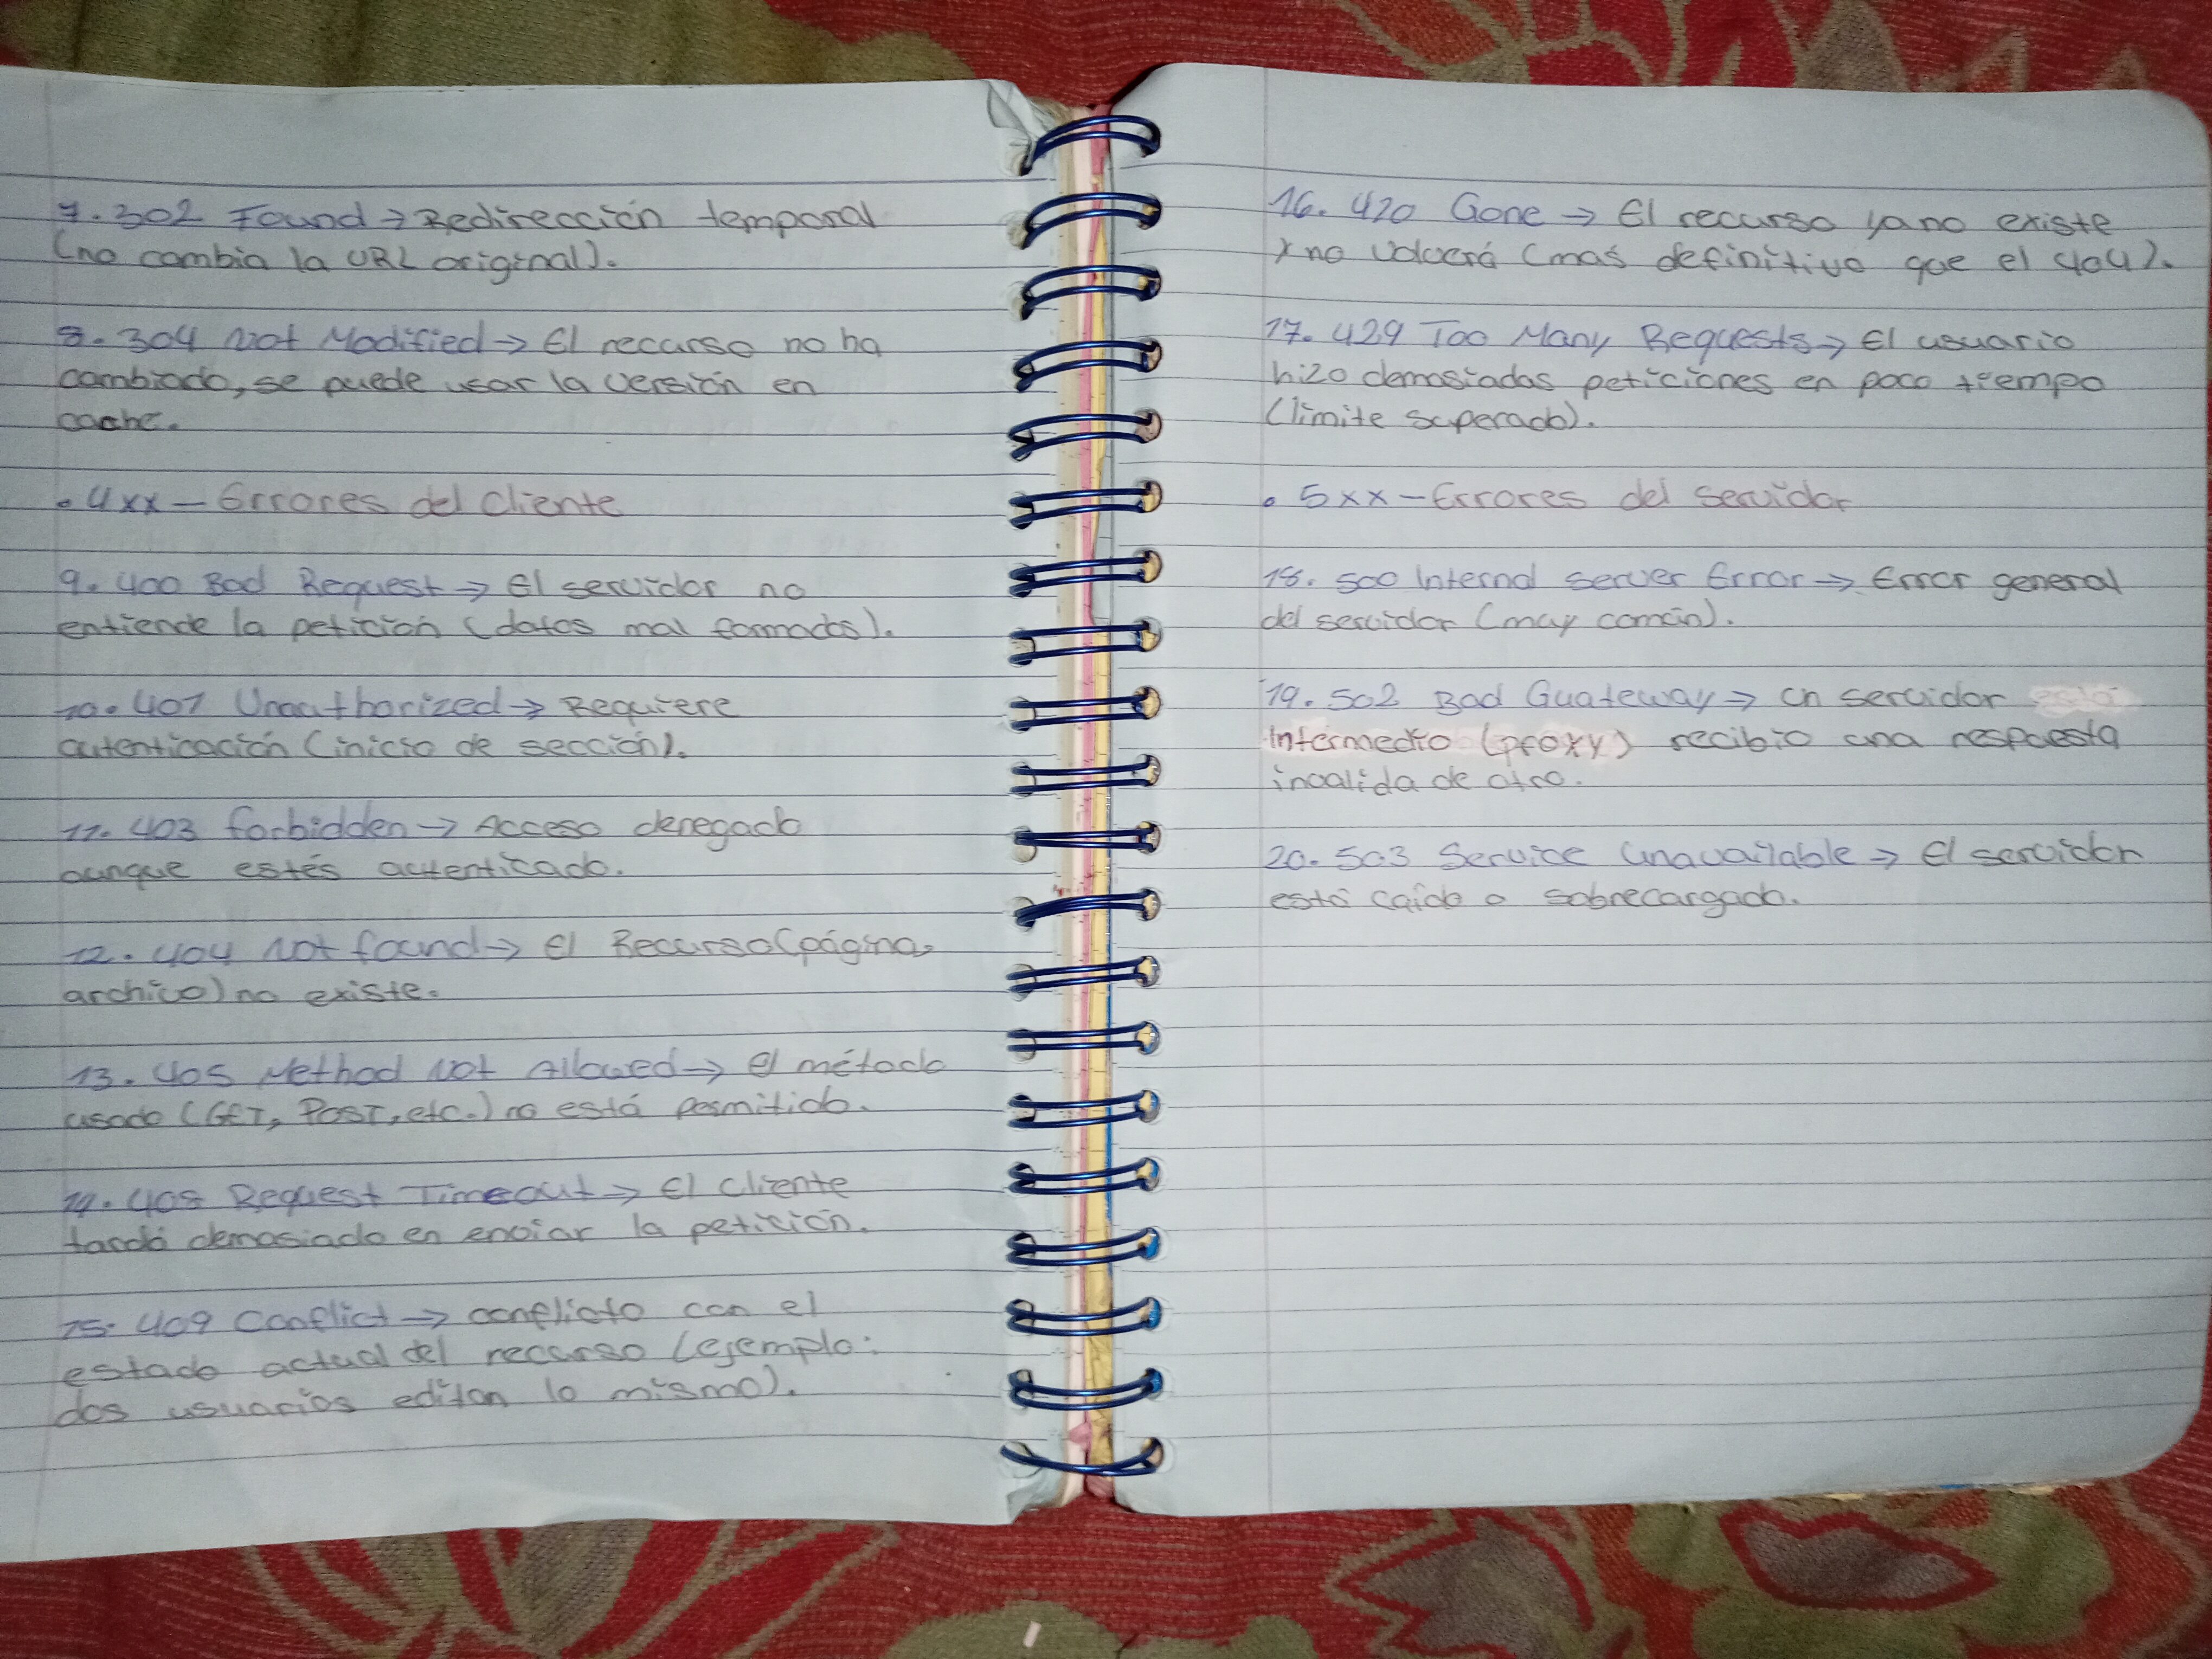 7. 302 Found → Redirección temporal
(no cambia la URL original).
8. 304 Not Modified → El recurso no ha
cambiado, se puede usar la versión en
caché.
• 4xx – Errores del cliente
9. 400 Bad Request → El servidor no
entiende la petición (datos mal formados).
10. 401 Unauthorized → Requiere
autenticación (inicio de sección).
11. 403 forbidden → Acceso denegado
aunque estés autenticado.
12. 404 Not found → El Recurso (página,
archivo) no existe.
13. 405 Method Not Allowed → El método
usado (GET, POST, etc.) no está permitido.
14. 408 Request Timeout → El cliente
tardó demasiado en enviar la petición.
15. 409 Conflict → conflicto con el
estado actual del recurso (ejemplo:
dos usuarios editan lo mismo).
16. 410 Gone → El recurso ya no existe
y no volverá (mas definitivo que el 404).
17. 429 Too Many Requests → El usuario
hizo demasiadas peticiones en poco tiempo
(limite superado).
• 5xx – Errores del servidor
18. 500 Internal Server Error → Error general
del servidor (muy común).
19. 502 Bad Guateway → un servidor
Intermedio (proxy) recibio una respuesta
invalida de otro.
20. 503 Service Unavailable → El servidor
está caído o sobrecargado.